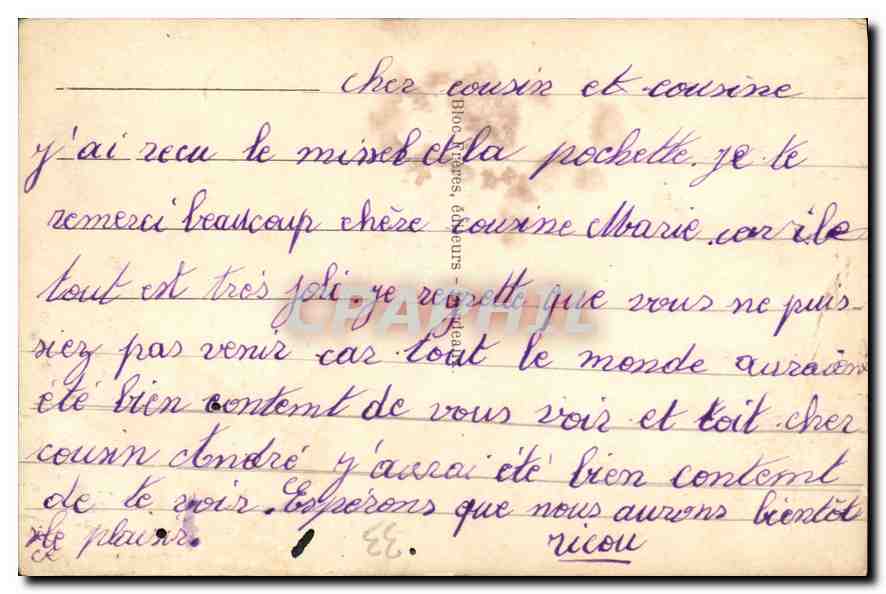 cher cousin et cousine
j'ai recu le missel et la pochette. je te
remerci beaucoup chère cousine Marie car
tout est très joli. je regrette que vous ne puis-
siez pas venir car tout le monde auraient
été bien contemt de vous voir et toit cher
cousin André j'aurai été bien contemt
de te voir. Espérons que nous aurons bientôt
le plaisir.
ricou
33.
Bloc Frères, éditeurs - Bordeaux.
CPAPHIL